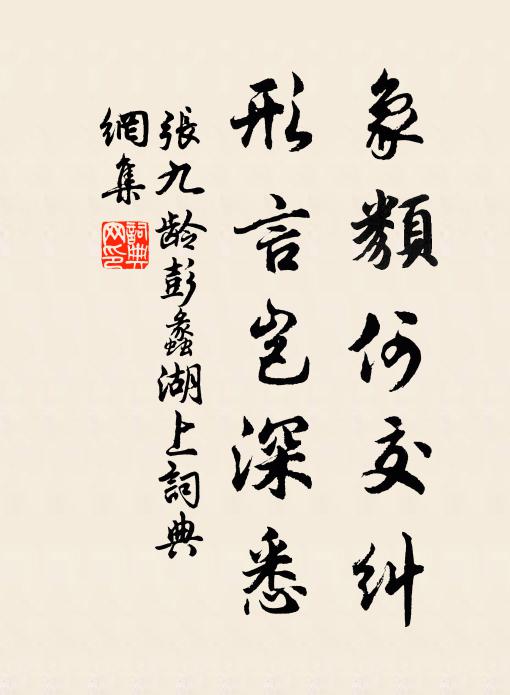 象類何交糾
形言豈深悉
張九齡彭蠡湖上詞典
網集
詞典
网印